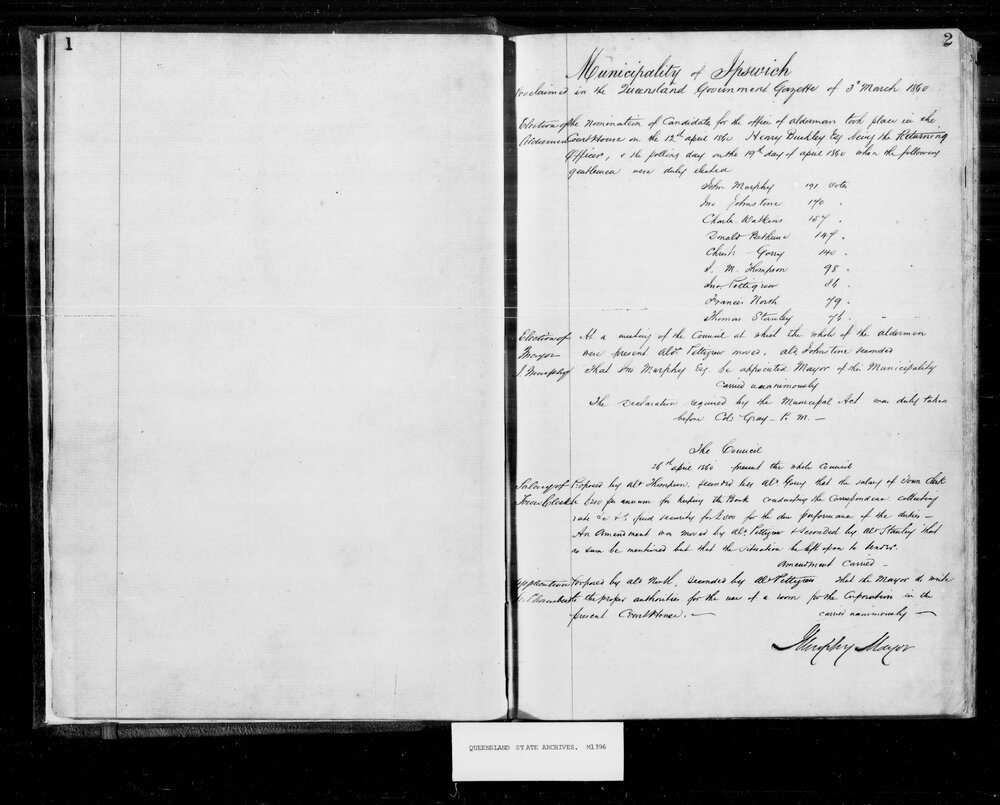 1
2
Municipality of Ipswich
Proclaimed in the Queensland Government Gazette of 3d March 1860
Election of
Aldermen
The Nomination of Candidates for the office of aldermen took place in the
Court House on the 12th april 1860 Henry Buckley Esq being the Returning
Officer, & the polling day on the 19th day of april 1860 when the following
gentlemen were duly elected
John Murphy 191 Votes
Jno Johnstone 170 "
Charles Watkins 157 "
Donald Bethune 147 "
Christr Gorry 140 "
J. M. Thompson 98 "
Jno. Pettigrew 86 "
Francis North 79 "
Thomas Stanley 76 "
Election of
Mayor
J. Murphy
At a meeting of the Council at which the whole of the aldermen
were present Aldn Pettigrew moved, ald Johnstone seconded
That Jno Murphy Esq. be appointed Mayor of this Municipality
carried unanimously
The Declaration required by the Municipal Act was duly taken
before Col: Gray - P. M. -
The Council
26th april 1860 present the whole Council
Salary of
Town Clerk
Proposed by aldn Thompson, seconded by ald. Gorry that the salary of Town Clerk
be per annum for keeping the Books conducting the Correspondence, collecting
rate &c & find security for £200 for the due performance of the duties -
An Amendment was moved by ald. Pettigrew & seconded by aldn Stanley that
no sum be mentioned but that the situation be left open to tender.
Amendment Carried -
Proposed by aldn North, seconded by aldn Pettigrew that the Mayor do write
to the proper authorities for the use of a room for the Corporation in the
present Court House. -
carried unanimously -
JMurphy Mayor
QUEENSLAND STATE ARCHIVES. M1396